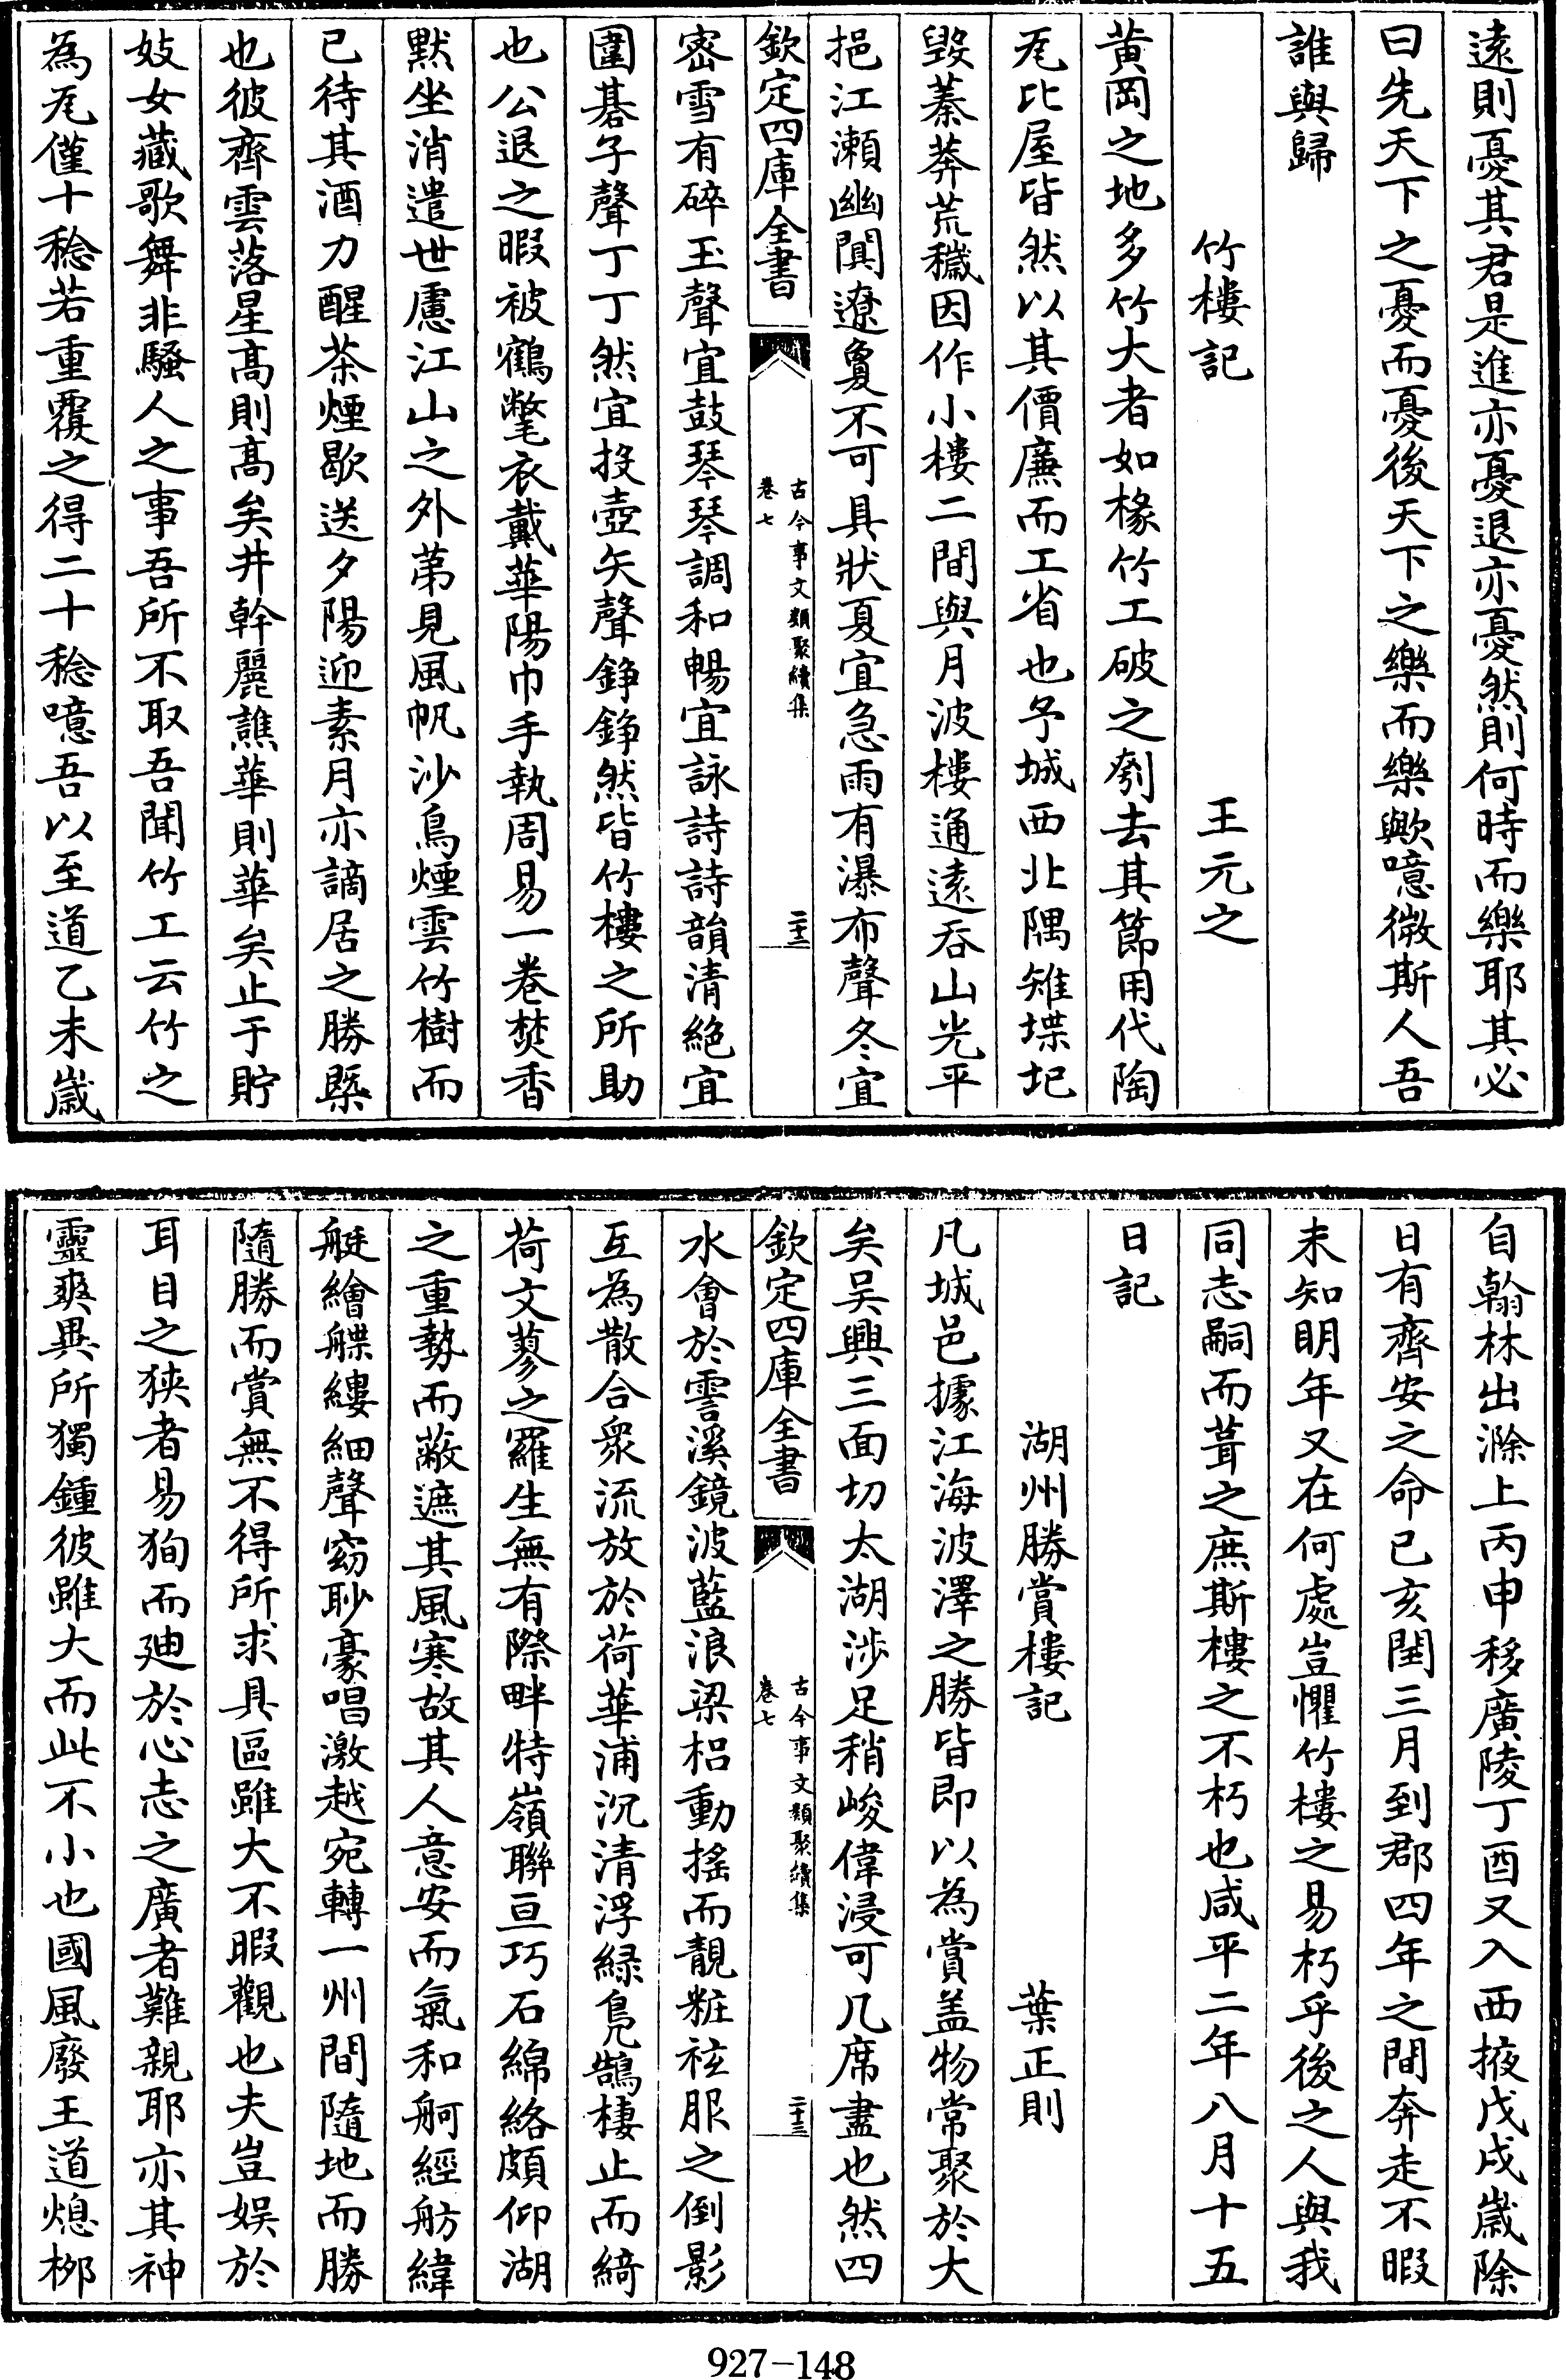 遠則憂其君是進亦憂退亦憂然則何時而樂耶其必
曰先天下之憂而憂後天下之樂而樂歟噫微斯人吾
誰與歸
竹樓記　王元之
黃岡之地多竹大者如椽竹工破之刳去其節用代陶
瓦比屋皆然以其價廉而工省也予城西北隅雉堞圮
毀蓁莽荒穢因作小樓二間與月波樓通遠吞山光平
挹江瀨幽闃遼夐不可具狀夏宜急雨有瀑布聲冬宜
欽定四庫全書
古今事文類聚續集
卷七
二十三
密雪有碎玉聲宜鼓琴琴調和暢宜詠詩詩韻清絕宜
圍碁子聲丁丁然宜投壺矢聲錚錚然皆竹樓之所助
也公退之暇被鶴氅衣戴華陽巾手執周易一卷焚香
默坐消遣世慮江山之外第見風帆沙鳥煙雲竹樹而
已待其酒力醒茶煙歇送夕陽迎素月亦謫居之勝槩
也彼齊雲落星高則高矣井幹麗譙華則華矣止于貯
妓女藏歌舞非騷人之事吾所不取吾聞竹工云竹之
為瓦僅十稔若重覆之得二十稔噫吾以至道乙未歲
自翰林出滁上丙申移廣陵丁酉又入西掖戊戌歲除
日有齊安之命已亥閏三月到郡四年之間奔走不暇
未知明年又在何處豈懼竹樓之易朽乎後之人與我
同志嗣而葺之庶斯樓之不朽也咸平二年八月十五
日記
湖州勝賞樓記　葉正則
凡城邑據江海波澤之勝皆即以為賞盖物常聚於大
矣吳興三面切太湖涉足稍峻偉浸可几席盡也然四
欽定四庫全書
古今事文類聚續集
卷七
二十三
水會於霅溪鏡波藍浪梁梠動搖而靚粧袨服之倒影
互為散合衆流放於荷華浦沉清浮緑鳧鵠棲止而綺
荷文蓼之羅生無有際畔特嶺聯亘巧石綿絡頗仰湖
之重勢而蔽遮其風寒故其人意安而氣和舸經舫緯
艇繪艓縷細聲窈眇豪唱激越宛轉一州間隨地而勝
隨勝而賞無不得所求具區雖大不暇觀也夫豈娛於
耳目之狹者易狥而廸於心志之廣者難親耶亦其神
靈爽異所獨鍾彼雖大而此不小也國風廢王道熄柳
927-148